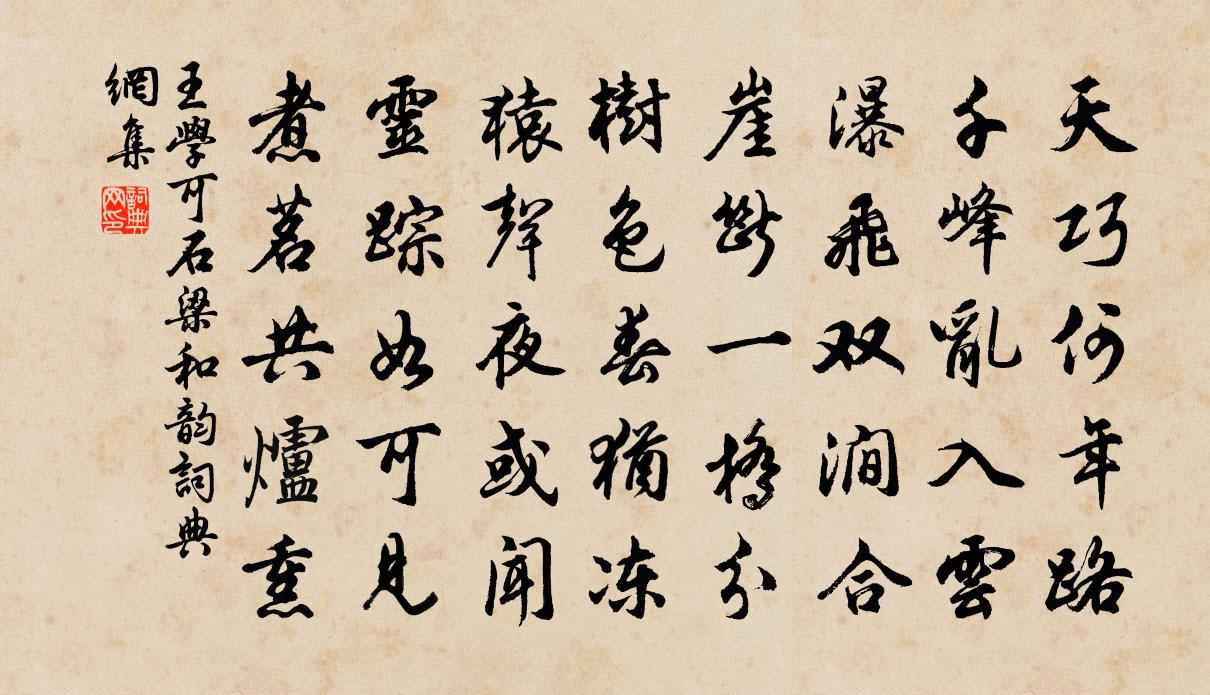 天巧何年路
千峰亂入雲
瀑飛双澗合
崖斷一橋分
樹色春猶冻
猿聲夜或闻
靈踪如可見
煮茗共爐熏
王學可石梁和韵詞典
網集
詞典
网印